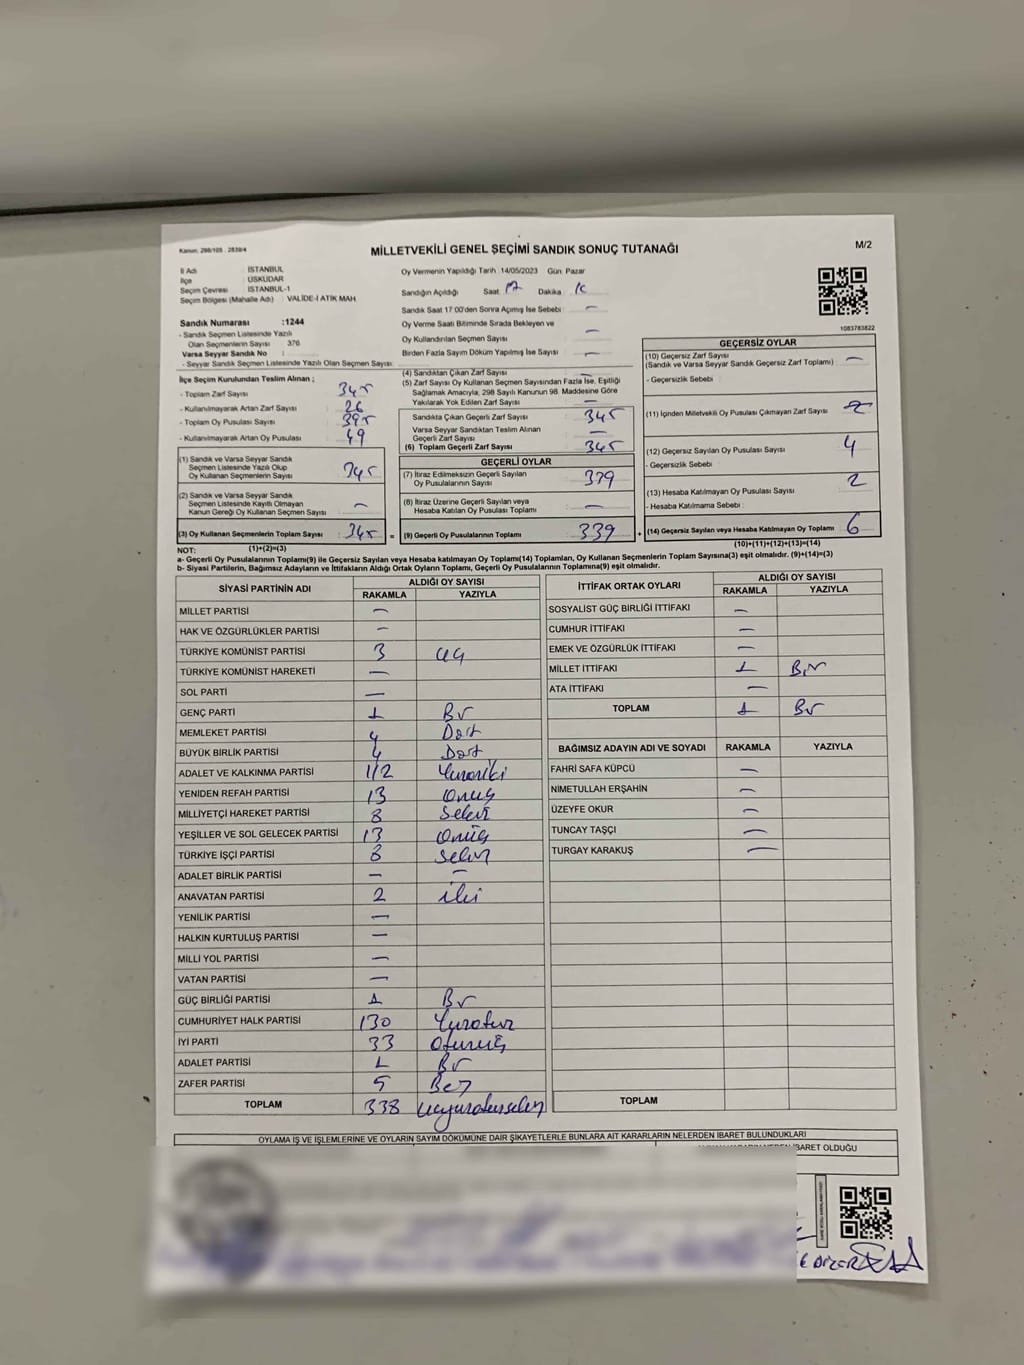 Kanun: 298/105 - 2839/4
MİLLETVEKİLİ GENEL SEÇİMİ SANDIK SONUÇ TUTANAĞI
M/2
İl Adı : İSTANBUL
İlçe : ÜSKÜDAR
Seçim Çevresi : İSTANBUL-1
Seçim Bölgesi (Mahalle Adı) : VALİDE-İ ATİK MAH.
Sandık Numarası :1244
- Sandık Seçmen Listesinde Yazılı
Olan Seçmenlerin Sayısı : 376
Varsa Seyyar Sandık No :
- Seyyar Sandık Seçmen Listesinde Yazılı Olan Seçmen Sayısı:
Oy Vermenin Yapıldığı Tarih :14/05/2023 Gün: Pazar
Sandığın Açıldığı Saat 17 Dakika
Sandık Saat 17:00'den Sonra Açımış İse Sebebi : —
Oy Verme Saati Bitiminde Sırada Bekleyen ve
Oy Kullandırılan Seçmen Sayısı —
Birden Fazla Sayım Döküm Yapılmış İse Sayısı : —
1083783822
İlçe Seçim Kurulundan Teslim Alınan ;
- Toplam Zarf Sayısı : 345
- Kullanılmayarak Artan Zarf Sayısı : 26
- Toplam Oy Pusulası Sayısı : 395
- Kullanılmayarak Artan Oy Pusulası : 49
(1) Sandık ve Varsa Seyyar Sandık
Seçmen Listesinde Yazılı Olup
Oy Kullanan Seçmenlerin Sayısı 345
(2) Sandık ve Varsa Seyyar Sandık
Seçmen Listesinde Kayıtlı Olmayan
Kanun Gereği Oy Kullanan Seçmen Sayısı —
(3) Oy Kullanan Seçmenlerin Toplam Sayısı 345
(1)+(2)=(3)
(4) Sandıktan Çıkan Zarf Sayısı :
(5) Zarf Sayısı Oy Kullanan Seçmen Sayısından Fazla İse, Eşitliği
Sağlamak Amacıyla; 298 Sayılı Kanunun 98. Maddesine Göre
Yakılarak Yok Edilen Zarf Sayısı —
Sandıkta Çıkan Geçerli Zarf Sayısı 345
Varsa Seyyar Sandıktan Teslim Alınan
Geçerli Zarf Sayısı —
(6) Toplam Geçerli Zarf Sayısı 345
GEÇERLİ OYLAR
(7) İtiraz Edilmeksizin Geçerli Sayılan
Oy Pusulalarının Sayısı 339
(8) İtiraz Üzerine Geçerli Sayılan veya
Hesaba Katılan Oy Pusulası Toplamı —
= (9) Geçerli Oy Pusulalarının Toplamı 339
GEÇERSİZ OYLAR
(10) Geçersiz Zarf Sayısı —
(Sandık ve Varsa Seyyar Sandık Geçersiz Zarf Toplamı)
- Geçersizlik Sebebi :
(11) İçinden Milletvekili Oy Pusulası Çıkmayan Zarf Sayısı
(12) Geçersiz Sayılan Oy Pusulası Sayısı 4
- Geçersizlik Sebebi :
(13) Hesaba Katılmayan Oy Pusulası Sayısı 2
- Hesaba Katılmama Sebebi :
+ (14) Geçersiz Sayılan veya Hesaba Katılmayan Oy Toplamı 6
(10)+(11)+(12)+(13)=(14)
NOT:
a- Geçerli Oy Pusulalarının Toplamı(9) ile Geçersiz Sayılan veya Hesaba katılmayan Oy Toplamı(14) Toplamları, Oy Kullanan Seçmenlerin Toplam Sayısına(3) eşit olmalıdır. (9)+(14)=(3)
b- Siyasi Partilerin, Bağımsız Adayların ve İttifakların Aldığı Ortak Oyların Toplamı, Geçerli Oy Pusulalarının Toplamına(9) eşit olmalıdır.
SİYASİ PARTİNİN ADI
ALDIĞI OY SAYISI
RAKAMLA YAZIYLA
MİLLET PARTİSİ —
HAK VE ÖZGÜRLÜKLER PARTİSİ —
TÜRKİYE KOMÜNİST PARTİSİ 3 üç
TÜRKİYE KOMÜNİST HAREKETİ —
SOL PARTİ —
GENÇ PARTİ 1 Bir
MEMLEKET PARTİSİ 4 Dört
BÜYÜK BİRLİK PARTİSİ 4 Dört
ADALET VE KALKINMA PARTİSİ 112 Yüzoniki
YENİDEN REFAH PARTİSİ 13 Onüç
MİLLİYETÇİ HAREKET PARTİSİ 8 Sekiz
YEŞİLLER VE SOL GELECEK PARTİSİ 13 Onüç
TÜRKİYE İŞÇİ PARTİSİ 8 Sekiz
ADALET BİRLİK PARTİSİ — —
ANAVATAN PARTİSİ 2 iki
YENİLİK PARTİSİ —
HALKIN KURTULUŞ PARTİSİ —
MİLLİ YOL PARTİSİ —
VATAN PARTİSİ —
GÜÇ BİRLİĞİ PARTİSİ 1 Bir
CUMHURİYET HALK PARTİSİ 130 Yüzotuz
İYİ PARTİ 33 Otuzüç
ADALET PARTİSİ 1 Bir
ZAFER PARTİSİ 5 Beş
TOPLAM 338 üçyüzotuzsekiz
İTTİFAK ORTAK OYLARI
ALDIĞI OY SAYISI
RAKAMLA YAZIYLA
SOSYALİST GÜÇ BİRLİĞİ İTTİFAKI —
CUMHUR İTTİFAKI —
EMEK VE ÖZGÜRLÜK İTTİFAKI —
MİLLET İTTİFAKI 1 Bir
ATA İTTİFAKI —
TOPLAM 1 Bir
BAĞIMSIZ ADAYIN ADI VE SOYADI RAKAMLA YAZIYLA
FAHRİ SAFA KÜPCÜ —
NİMETULLAH ERŞAHİN —
ÜZEYFE OKUR —
TUNCAY TAŞÇI —
TURGAY KARAKUŞ —
TOPLAM
OYLAMA İŞ VE İŞLEMLERİNE VE OYLARIN SAYIM DÖKÜMÜNE DAİR ŞİKAYETLERLE BUNLARA AİT KARARLARIN NELERDEN İBARET BULUNDUKLARI
İBARET OLDUĞU